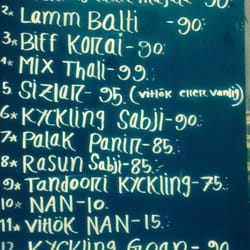 2* Lamm Balti -90:
3* Biff Korai -90:
4* Mix Thali -99:
5. Sizlar- 95. (Vitlök eller vanlig)
6* Kyckling Sabji-90:
7* Palak Panir-85:
8* Rasun Sabji-85:
9* Tandoori Kyckling-75:
10* NAN-10.
11* Vitlök NAN-15:
12 Kyckling Goan-90: